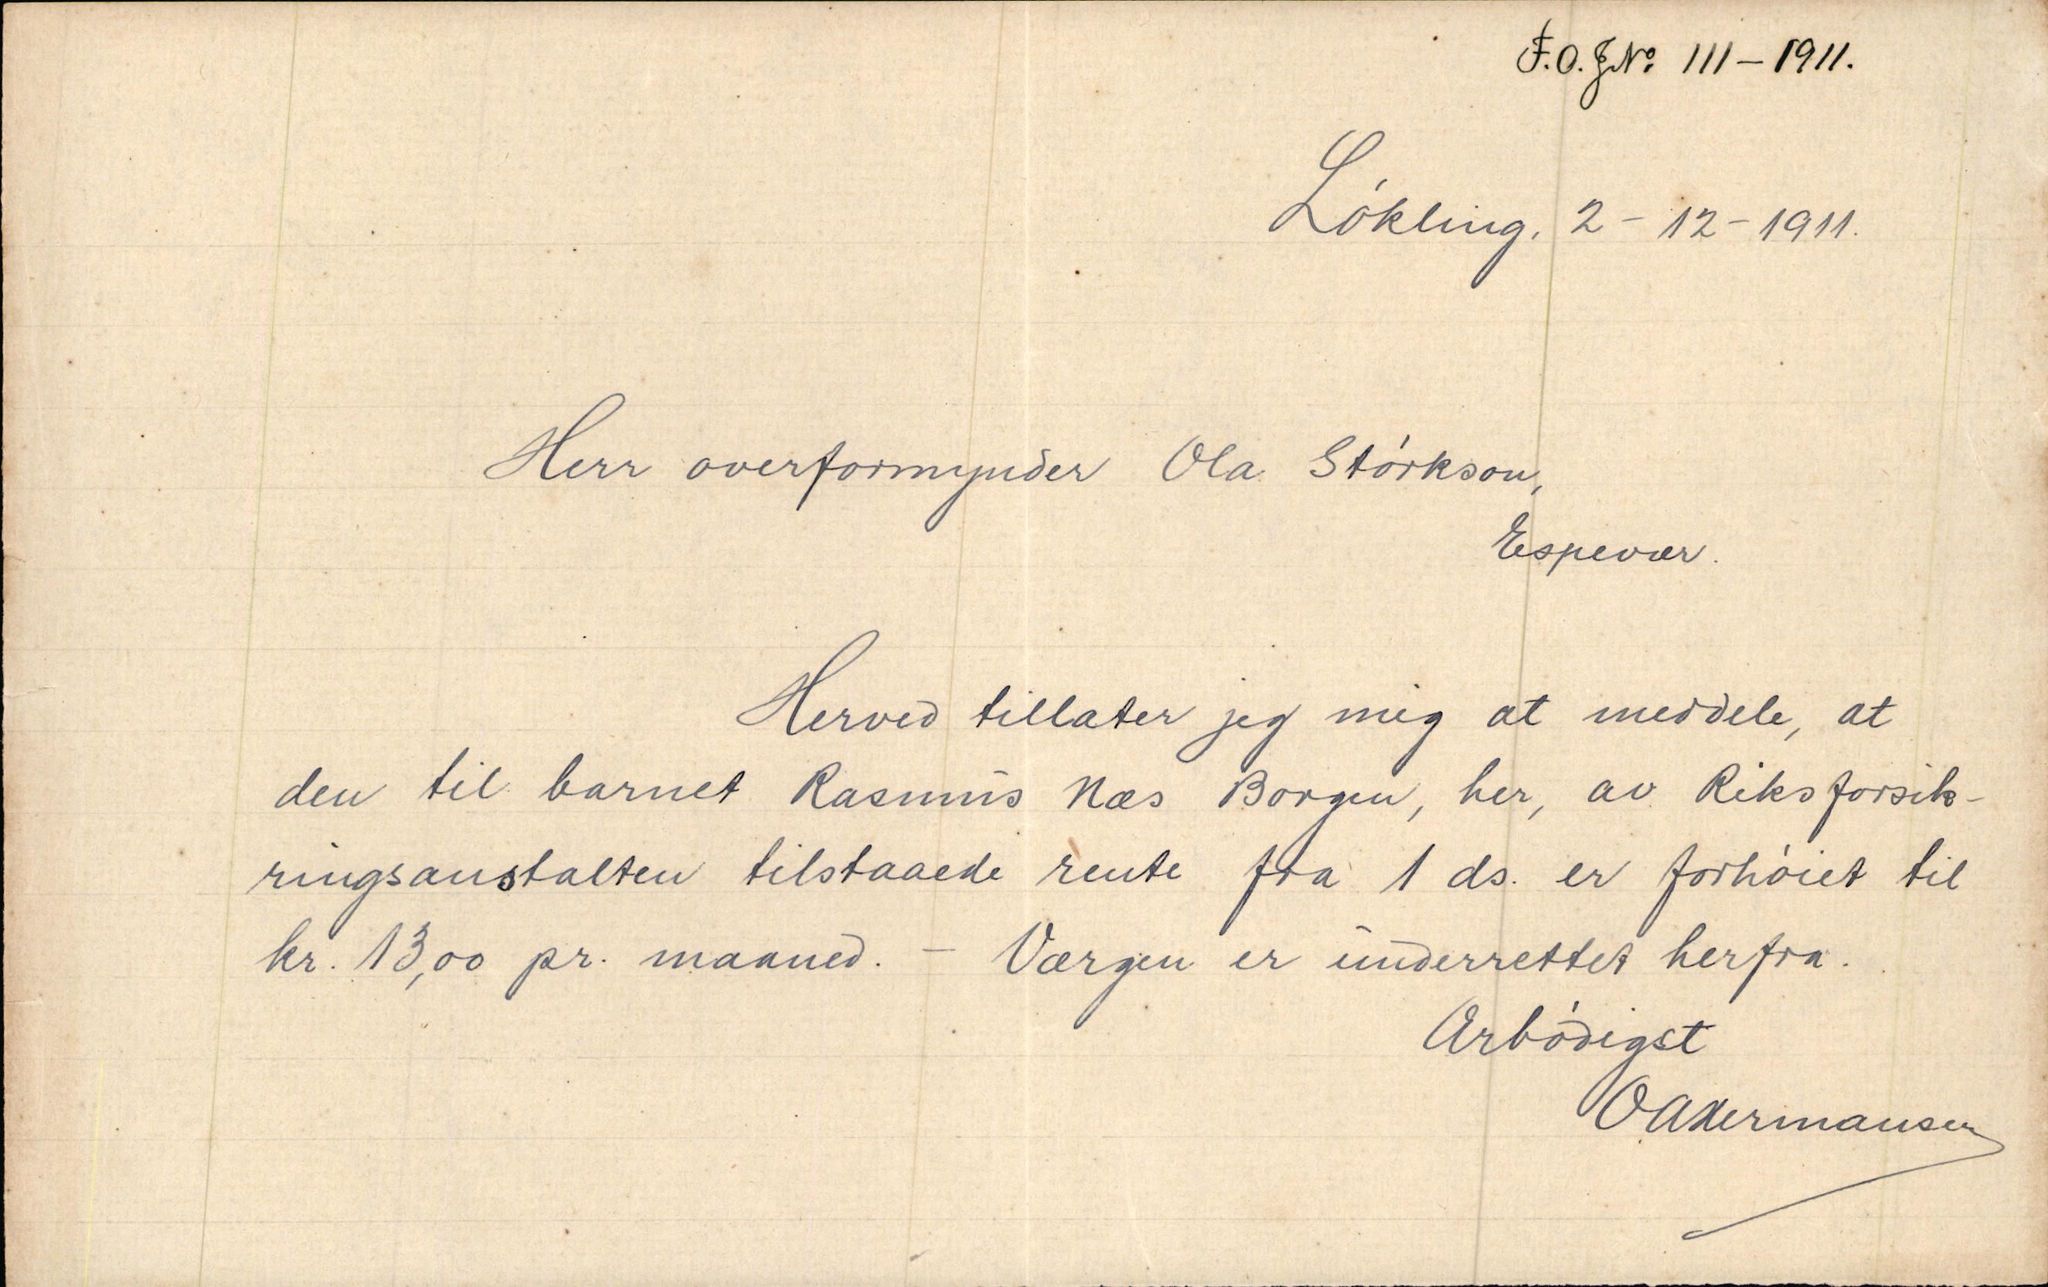 F.O.JNo. 111 – 1911.
Lókling, 2 – 12 – 1911.
Herr overformynder Ola Stórkson,
Espevær.
Herved tillater jeg mig at meddele, at
den til barnet Rasmus Næs Borgen, her, av Riksforsik-
ringsanstalten tilstaaede rente fra 1 ds. er forhóiet til
kr. 13,00 pr. maaned. – Værgen er underrettet herfra.
Ærbódigst
OAHermansen